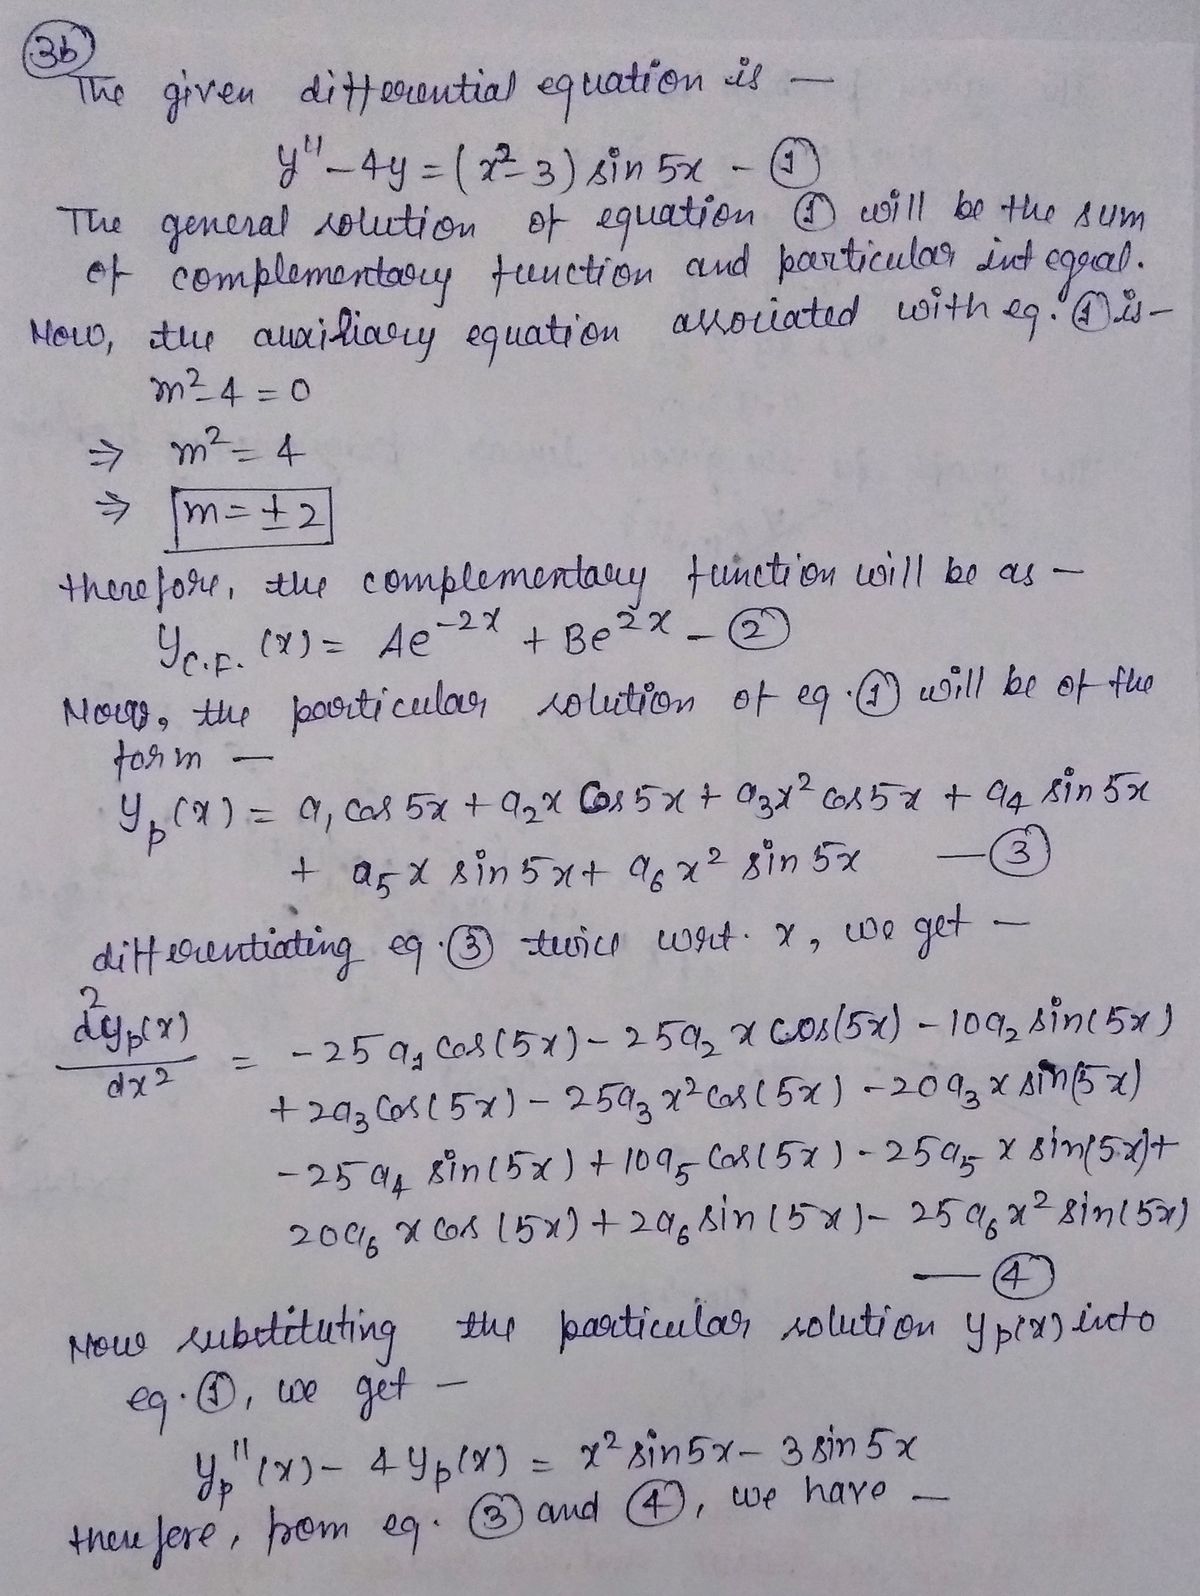 3b
The given differential equation is —
y'' - 4y = (x² - 3) sin 5x - ①
The general solution of equation ① will be the sum
of complementary function and particular integral.
Now, the auxiliary equation associated with eq. ① is -
m² - 4 = 0
⇒ m² = 4
⇒ m = ± 2
therefore, the complementary function will be as —
y_C.F. (x) = Ae^-2x + Be^2x - ②
Now, the particular solution of eq. ① will be of the
form —
y_p(x) = a₁ cos 5x + a₂x Cos 5x + a₃x² cos 5x + a₄ sin 5x
+ a₅ x sin 5x + a₆ x² sin 5x — ③
differentiating eq. ③ twice wrt. x, we get —
d²y_p(x)/dx² = -25 a₁ cos(5x) - 25a₂ x cos(5x) - 10a₂ sin(5x)
+ 2a₃ cos(5x) - 25a₃ x² cos(5x) - 20a₃ x sin(5x)
- 25 a₄ sin(5x) + 10a₅ cos(5x) - 25a₅ x sin(5x) +
20a₆ x cos (5x) + 2a₆ sin(5x) - 25 a₆ x² sin(5x)
— ④
Now substituting the particular solution y_p(x) into
eq. ①, we get —
y_p''(x) - 4y_p(x) = x² sin 5x - 3 sin 5x
therefore, from eq. ③ and ④, we have —